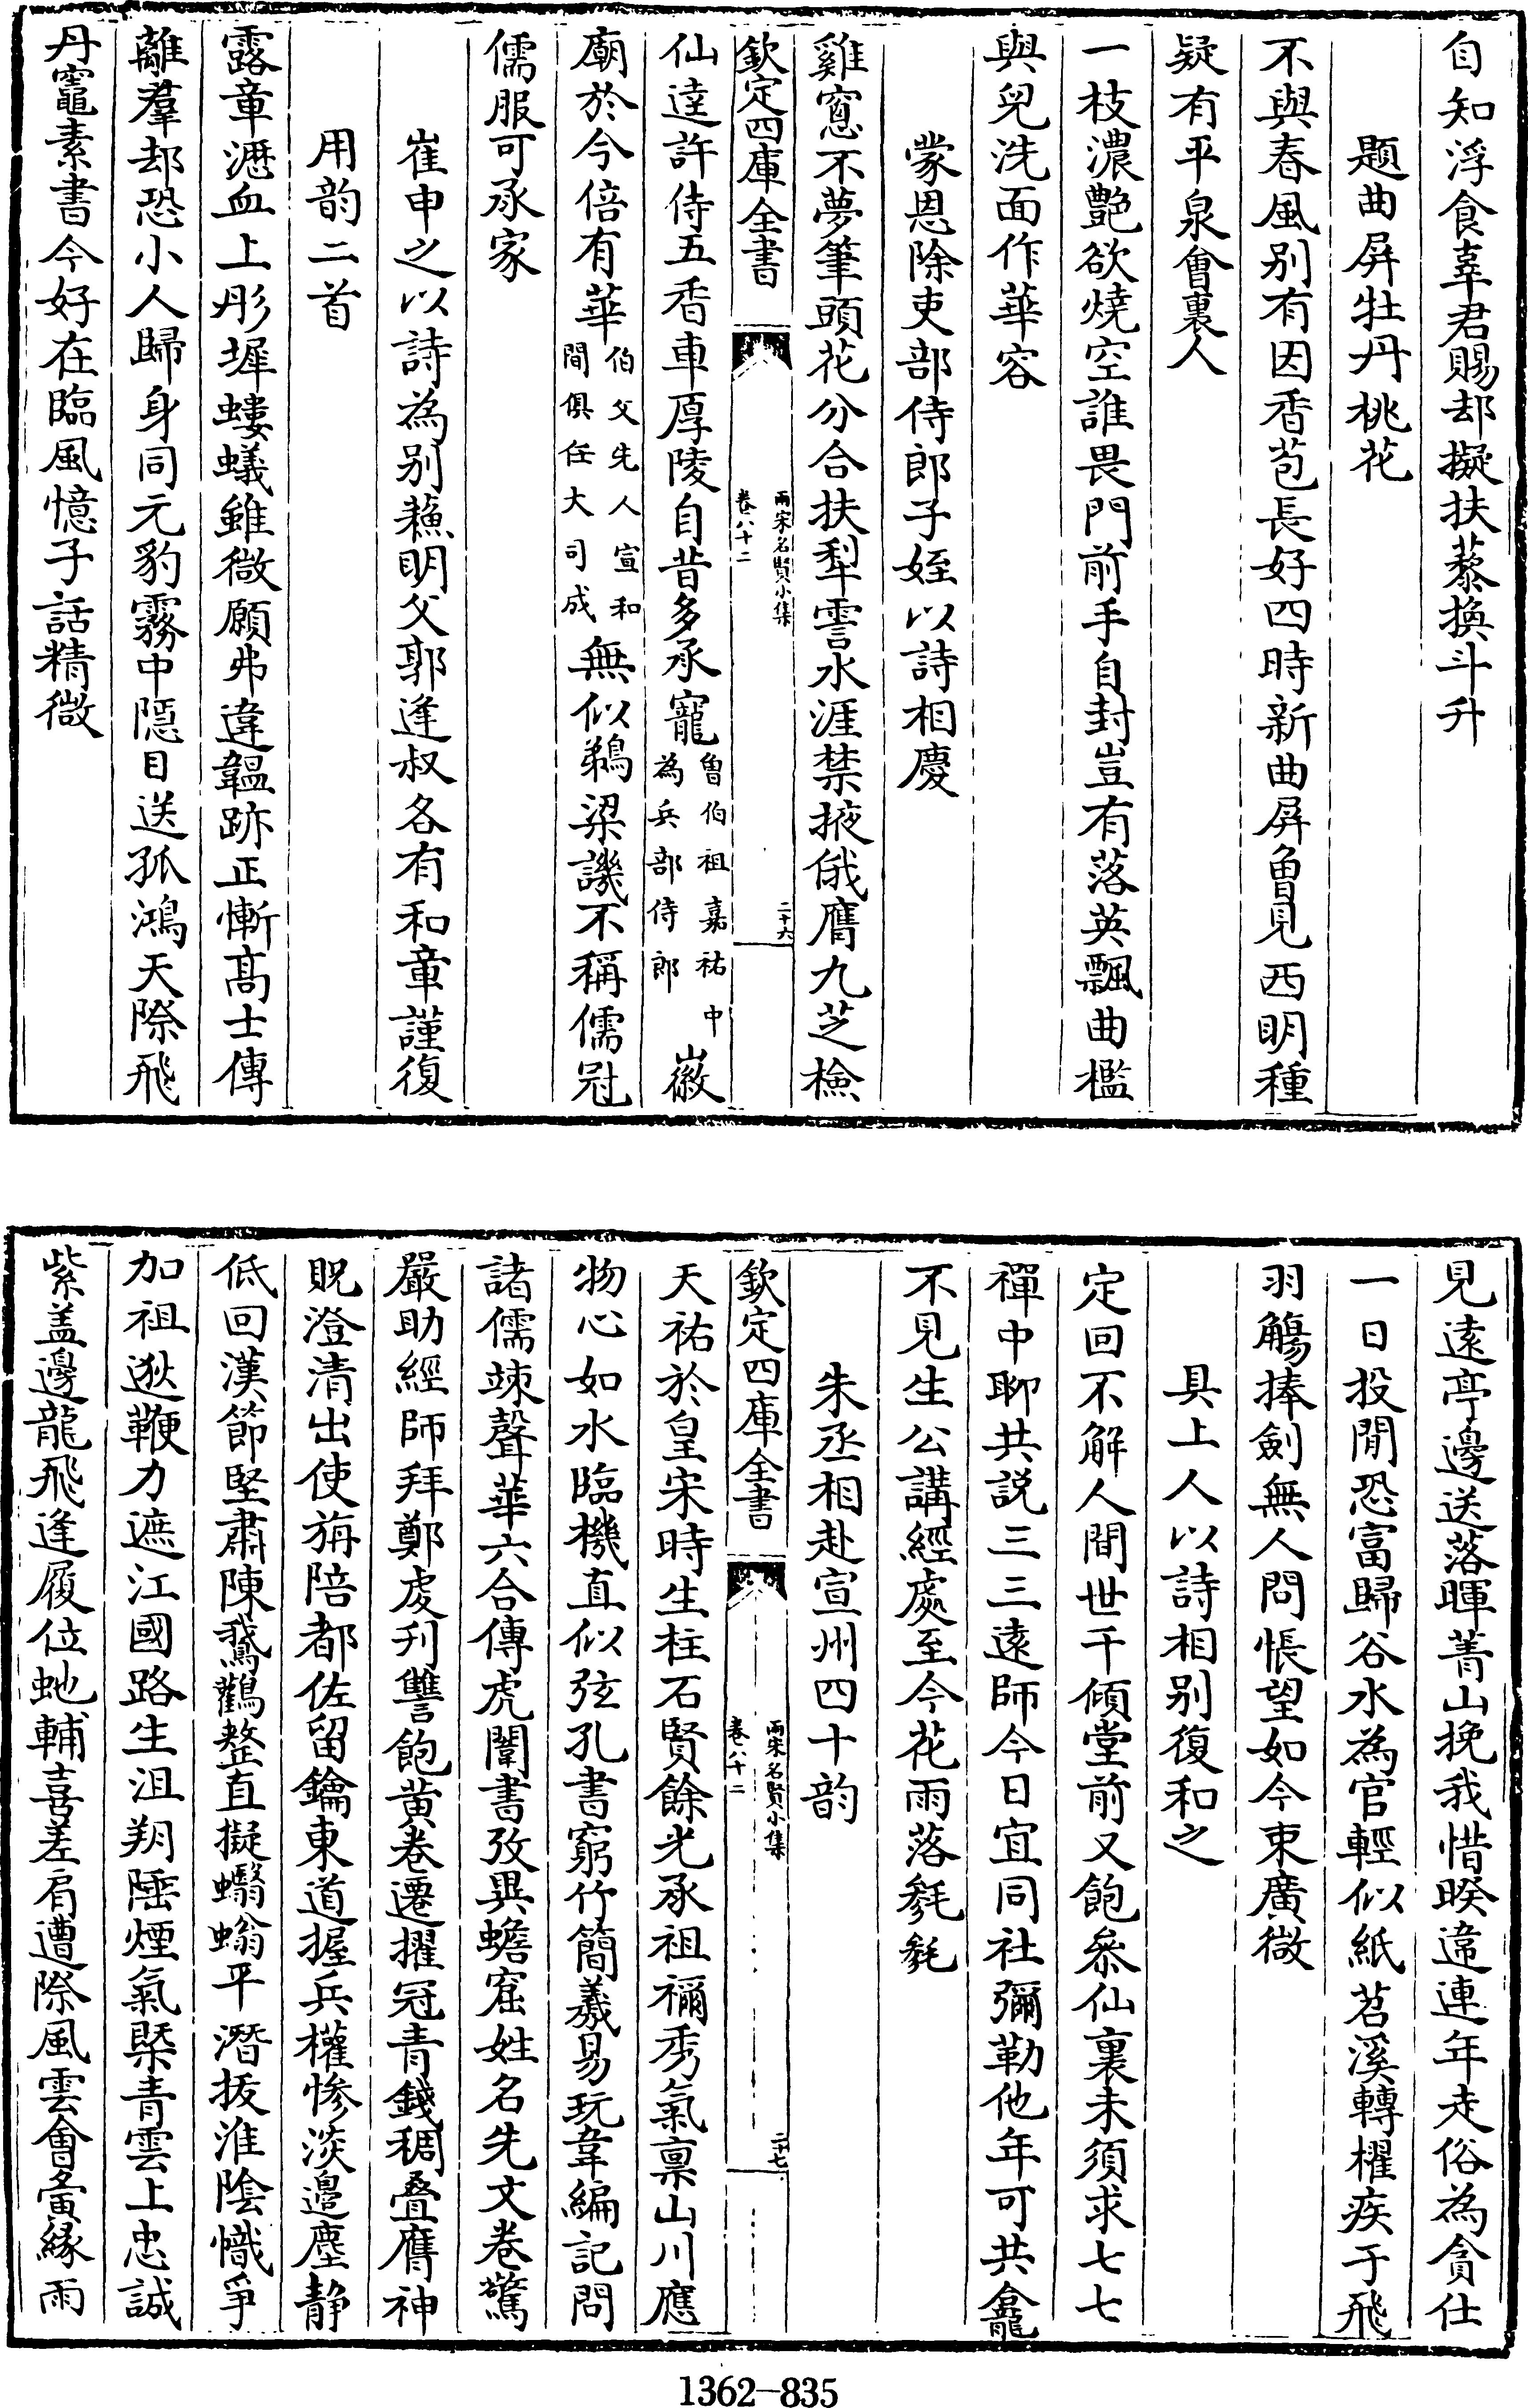 自知浮食辜君賜却擬扶藜換斗升
題曲屏牡丹桃花
不與春風别有因香苞長好四時新曲屏曾見西明種
疑有平泉會裏人
一枝濃艶欲燒空誰畏門前手自封豈有落英飄曲檻
與兒洗面作華容
蒙恩除吏部侍郎子姪以詩相慶
雞窻不夢筆頭花分合扶犂霅水涯禁掖俄膺九芝檢
欽定四庫全書
兩宋名賢小集
卷八十二
二十六
仙逹許侍五香車厚陵自昔多承寵
曾伯祖嘉祐中
為兵部侍郎
徽
廟於今倍有華
伯父先人宣和
間俱任大司成
無似鵜梁譏不稱儒冠
儒服可承家
崔申之以詩為别蘓明父郭逢叔各有和章謹復
用韵二首
露章瀝血上彤墀螻蟻雖微願弗違韞跡正慚髙士傳
離羣却恐小人歸身同元豹霧中隱目送孤鴻天際飛
丹竈素書今好在臨風憶子話精微
見逺亭邊送落暉菁山挽我惜暌違連年走俗為貪仕
一日投閒恐富歸谷水為官輕似紙苕溪轉櫂疾于飛
羽觴捧劍無人問悵望如今束廣微
具上人以詩相别復和之
定回不解人間世千傾堂前又飽叅仙裏未須求七七
禪中聊共説三三逺師今日宜同社彌勒他年可共龕
不見生公講經處至今花雨落毿毿
朱丞相赴宣州四十韵
欽定四庫全書
兩宋名賢小集
卷八十二
二十七
天祐於皇宋時生柱石賢餘光承祖禰秀氣禀山川應
物心如水臨機直似弦孔書窮竹簡羲易玩韋編記問
諸儒竦聲華六合傳虎闈書攷異蟾窟姓名先文卷驚
嚴助經師拜鄭虔刋讐飽黄卷遷擢冠青錢稠疊膺神
貺澄清出使旃陪都佐留鑰東道握兵權慘淡邉塵静
低回漢節堅肅陳鵞鸛整直擬蠮螉平潛拔淮隂幟爭
加祖逖鞭力遮江國路生沮朔陲煙氣槩青雲上忠誠
紫盖邊龍飛逢履位虵輔喜差肩遭際風雲會夤緣雨
1362-835